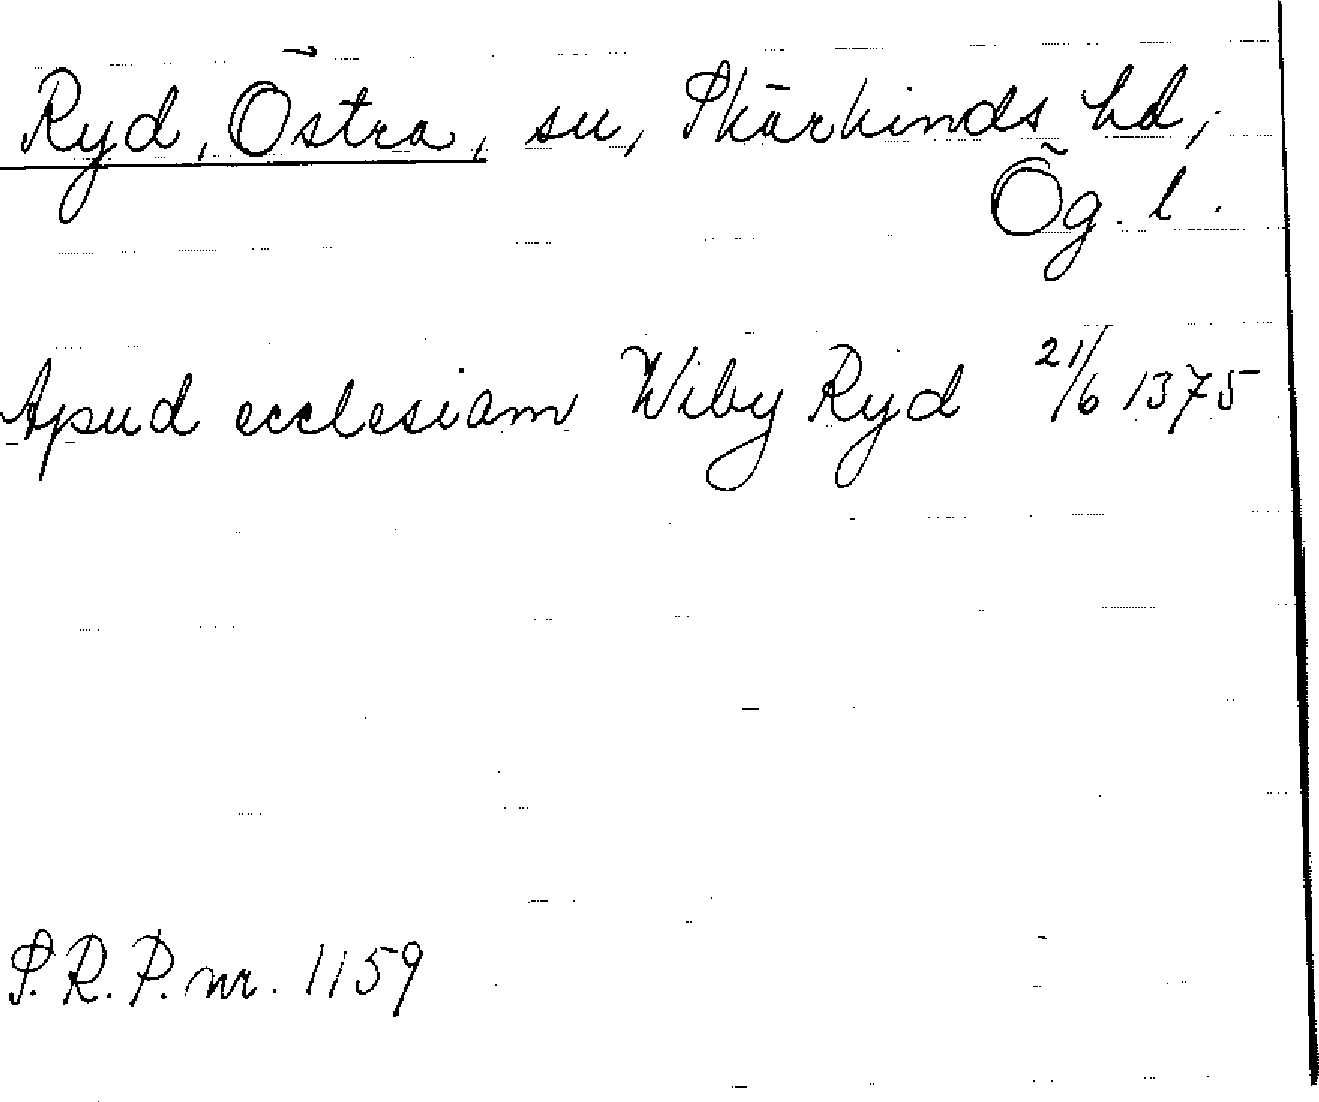 Ryd, Östra, sn, Skärkinds hd,
Ög. l.
Apud ecclesiam Wiby Ryd 21/6 1375
S.R.P. nr. 1159